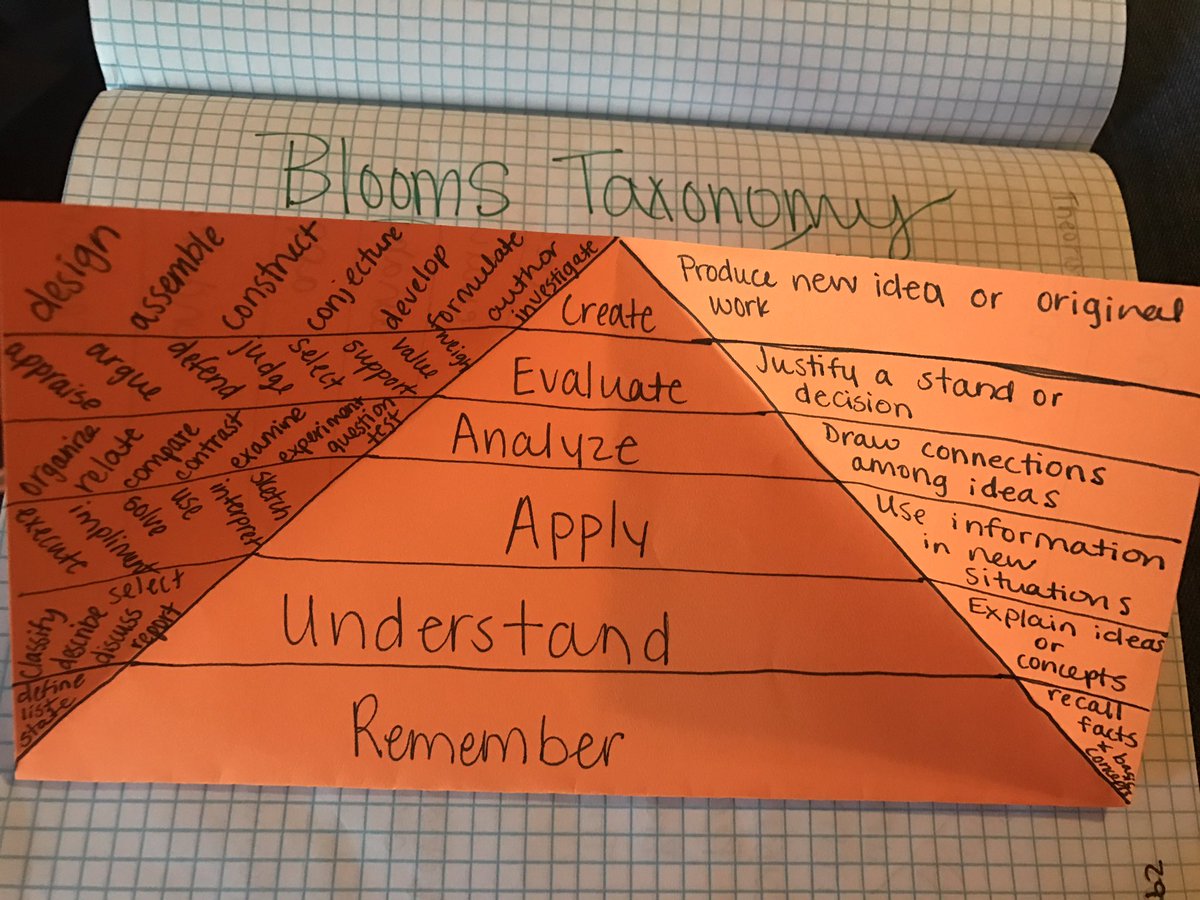 Blooms Taxonomy
design
assemble
construct
conjecture
develop
formulate
author
investigate
Create
Produce new idea or original
work
appraise
argue
defend
judge
select
support
value
weigh
Evaluate
Justify a stand or
decision
organize
relate
compare
contrast
examine
experiment
question
test
Analyze
Draw connections
among ideas
execute
impliment
solve
use
interpret
sketch
Apply
Use information
in new
situations
classify
describe
discuss
select
report
Understand
Explain ideas
or
concepts
define
list
state
Remember
recall
facts
+ basic
concepts
62